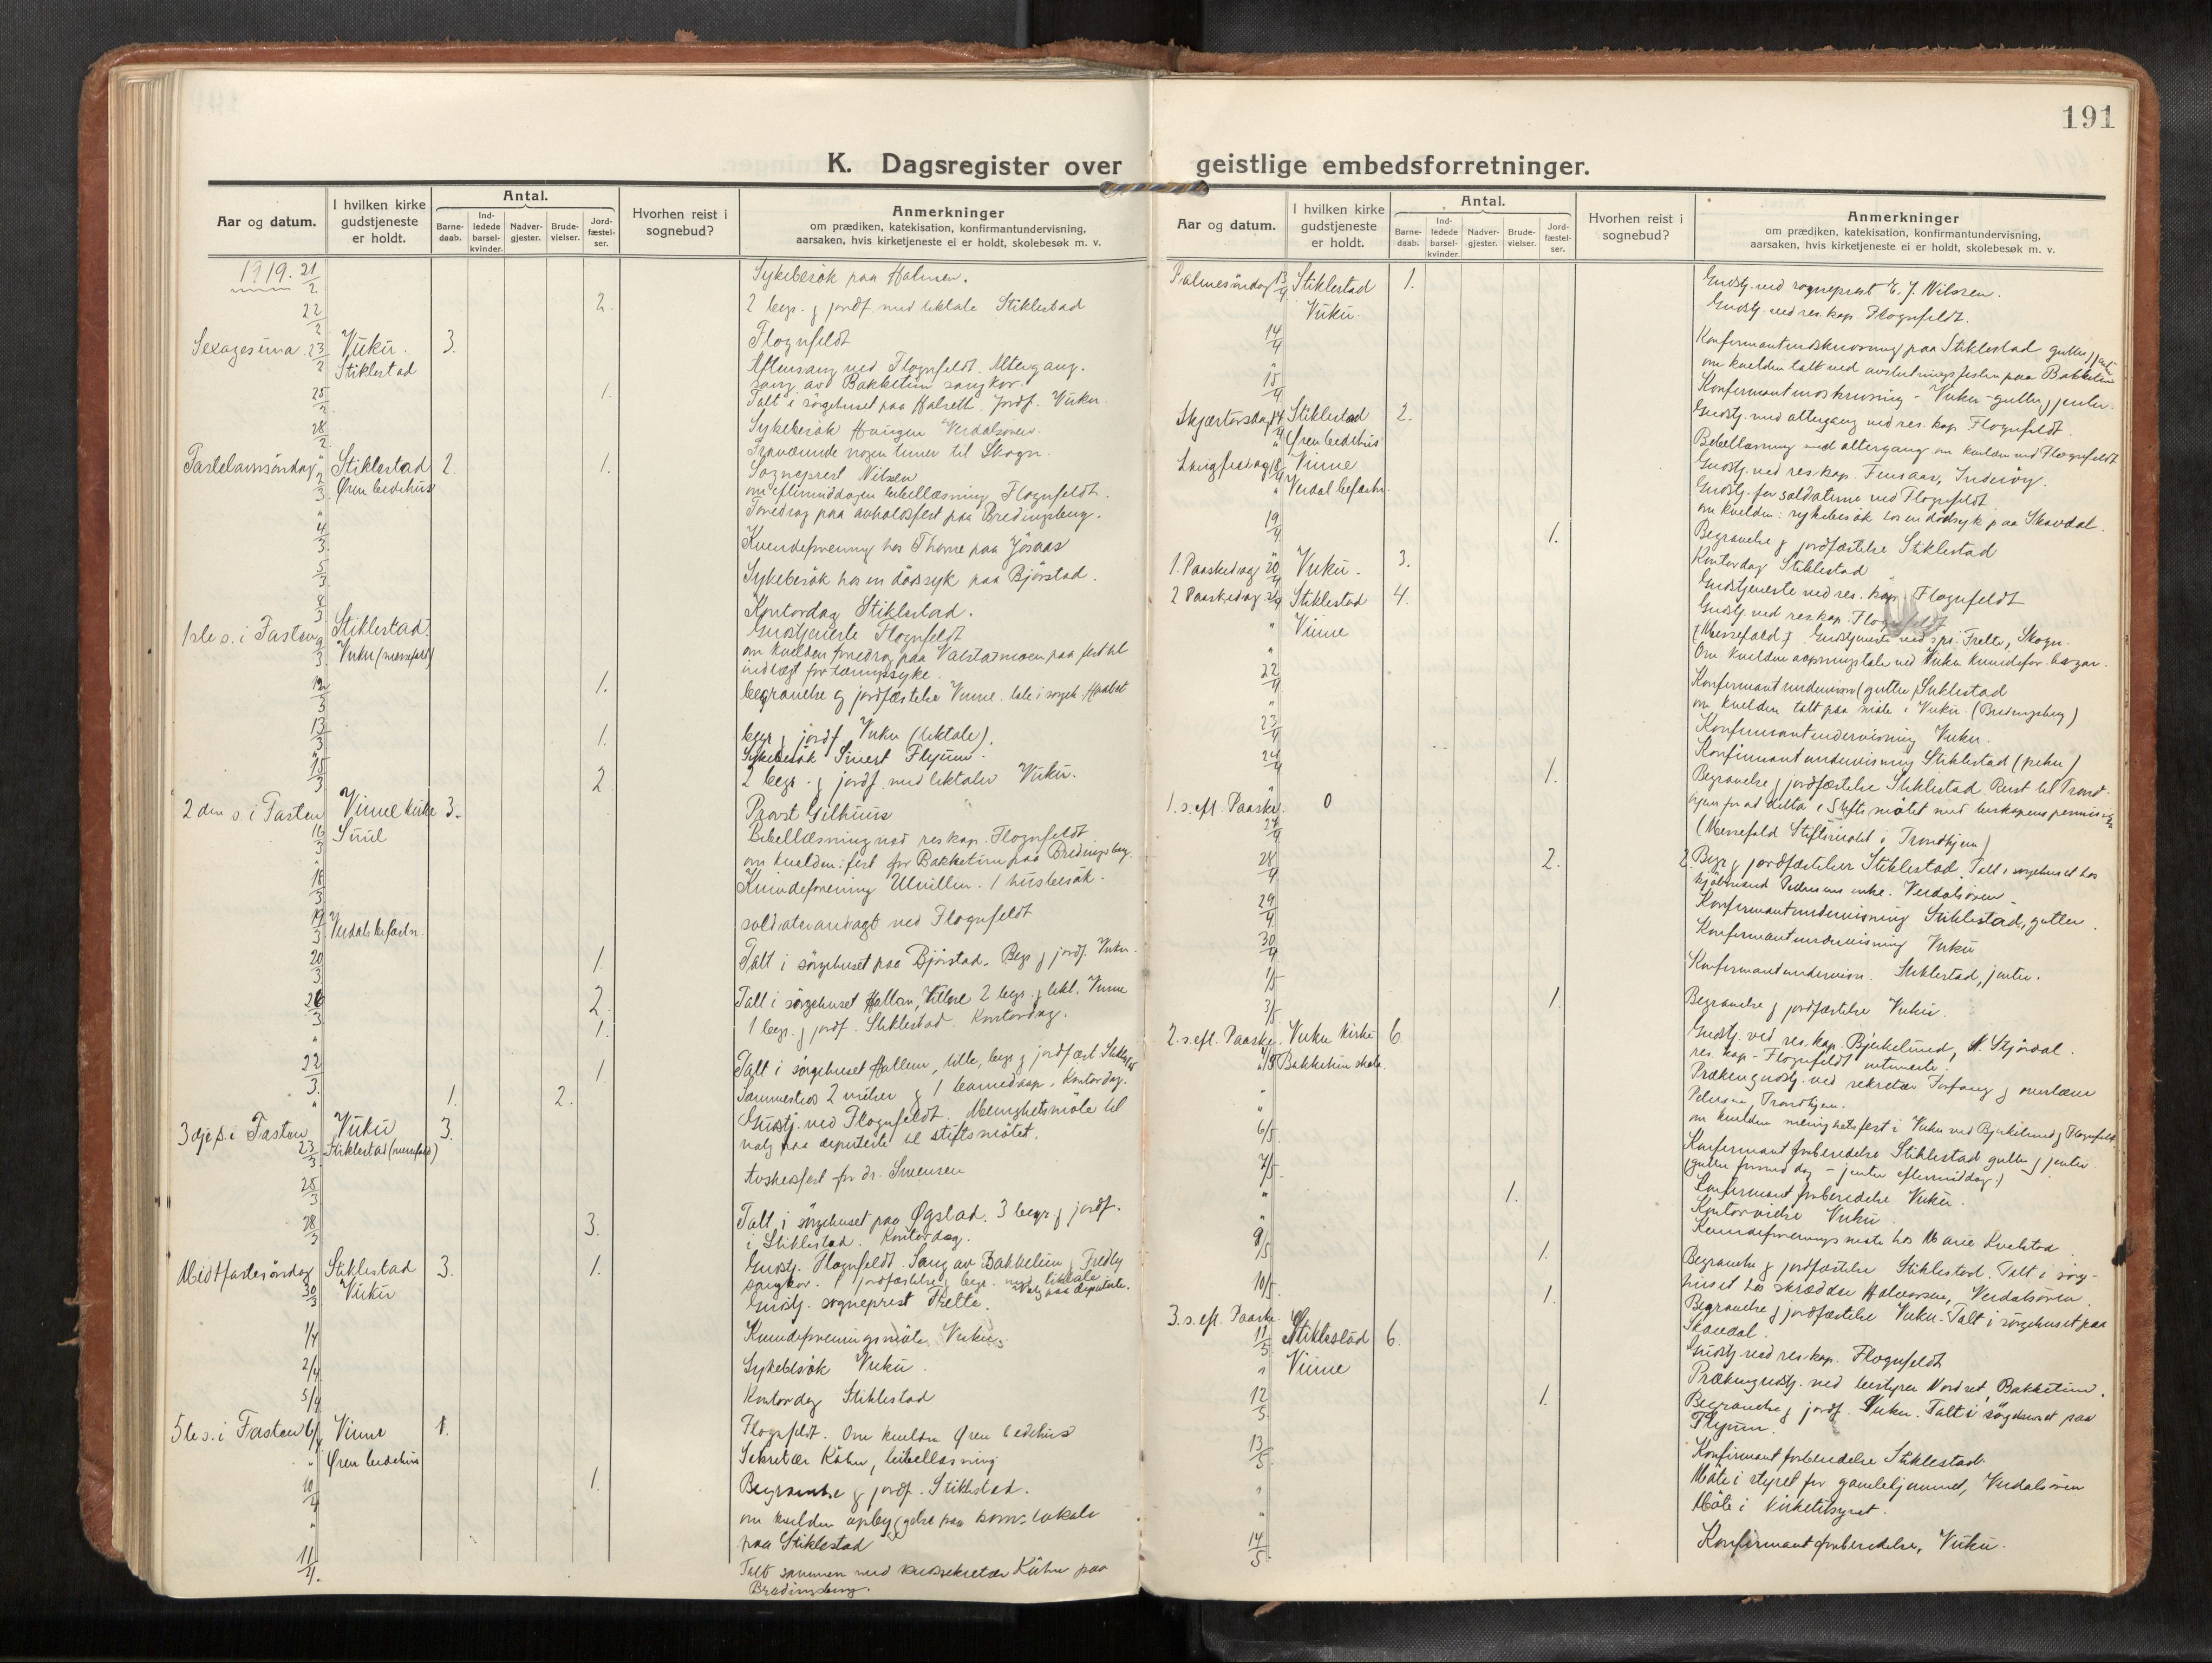 191
K. Dagsregister over geistlige embedsforretninger.
Aar og datum.
I hvilken kirke gudstjeneste er holdt.
Antal.
Barne-daab.
Ind-ledede barsel-kvinder.
Nadver-gjester.
Brude-vielser.
Jord-fæstel-ser.
Hvorhen reist i sognebud?
Anmerkninger
om prædiken, katekisation, konfirmantundervisning,
aarsaken, hvis kirketjeneste ei er holdt, skolebesøk m. v.
1919. 21/2 Sykebesøk paa Holmen.
22/2 2. 2 begr. & jordf. med liktale Stiklestad
Sexagesima 23/2 Vuku. 3. Flognfeldt
Stiklestad Aftensang ved Flognfeldt. Altergang.
sang av Bakketun sangkor.
25/2 1. Talt i sørgehuset paa Jordf. Vuku.
28/2 Sykebesøk Haugen Verdalsøren.
til Skogn.
Fastelavnsöndag 2/3 Stiklestad 2. 1. Sogneprest Nilssen
Øren bedehus om eftermiddagen bibellæsning Flognfeldt.
" Foredrag paa avholdsfest paa Bredingsberg.
4/3 Kvindeforening hos Thorne paa
5/3 Sykebesøk hos en dødssyk paa Bjørstad.
8/3 Kontordag Stiklestad.
1ste s. i Fasten 9/3 Stiklestad. Gudstjeneste Flognfeldt
Vuku (messefald) om kvelden foredrag paa paa fest til
indtægt for tæringssyke.
12/3 1. begravelse og jordfæstelse Vinne. tale i
13/3 1. begr & jordf Vuku (liktale).
" Sykebesøk Flyum.
15/3 2 2 begr. & jordf med liktaler Vuku.
2den s. i Fasten Vinne kirke 3. Provst Gilhuus
16/3 Suul Bibellæsning ved res kap. Flognfeldt
" om kvelden: fest for Bakketun paa Bredingsberg.
18/3 Kvindeforening Ulvillen. 1 husbesøk.
19/3 Verdals befæstn. soldaterandagt ved Flognfeldt
20/3 1. Talt i sørgehuset paa Bjørstad. Begr & jordf. Vuku.
2. Talt i sørgehuset 2 begr. & likt. Vinne
" 1. 1 begr. & jordf. Stiklestad. Kontordag.
22/3 1 Talt i sørgehuset Hallem, lille, begr & jordfæst Stiklestad
" 1. 2. 2 vielser & 1 barnedaap. Kontordag.
3dje s. i Fasten Vuku 3. Gudstj. ved Flognfeldt. Menighetsmøte til
23/3 Stiklestad (messefald) valg paa deputerte til stiftsmøtet.
25/3 Avskedsfest for dr. Svensen
28/3 3. Talt i sørgehuset paa Øgstad. 3 begr & jordf.
i Stiklestad. Kontordag.
Midtfastesöndag Stiklestad 3. 1. Gudstj. Flognfeldt. Sang av Bakketun & Fredly
sangkor. 1 jordfæstelse & begr. med liktale
30/3 Vuku Gudstj. sogneprest Frette. Valg paa deputerte.
1/4 Kvindeforeningsmøte Vuku.
2/4 Sykebesøk Vuku.
5/4 Kontordag Stiklestad
5te s. i Fasten 6/4 Vinne 1. Flognfeldt. Om kvelden Øren bedehus
" Øren bedehus Sekretær Kühn, bibellæsning
10/4 1. Begravelse & jordf. Stiklestad.
" om kvelden opbyggelse paa kom. lokale
paa Stiklestad
11/4. Talt sammen med Kühn paa
Bredingsberg.
Aar og datum.
I hvilken kirke gudstjeneste er holdt.
Antal.
Barne-daab.
Ind-ledede barsel-kvinder.
Nadver-gjester.
Brude-vielser.
Jord-fæstel-ser.
Hvorhen reist i sognebud?
Anmerkninger
om prædiken, katekisation, konfirmantundervisning,
aarsaken, hvis kirketjeneste ei er holdt, skolebesøk m. v.
Palmesöndag 13/4 Stiklestad 1. Gudstj. ved sogneprest E. J. Nilssen.
Vuku. Gudstj. ved res. kap. Flognfeldt.
14/4 Konfirmantindskrivning paa Stiklestad gutter & jenter
" om kvelden talt ved avslutningsfesten paa Bakketun
15/4 Konfirmantindskrivning - Vuku - gutter & jenter.
Skjærtorsdag Stiklestad 2. Gudstj. med altergang ved res. kap. Flognfeldt.
" Øren bedehus Bibellæsning med altergang om kvelden ved Flognfeldt
Langfredag 18/4 Vinne Gudstj. ved res. kap. Inderöy.
" Verdal befæstn. Gudstj. for soldaterne ved Flognfeldt
om kvelden: sykebesøk hos en dødssyk paa Skavdal.
19/4 1. Begravelse & jordfæstelse Stiklestad
Kontordag Stiklestad
1. Paaskedag 20/4 Vuku. 3. Gudstjeneste ved res. kap. Flognfeldt
2 Paaskedag 21/4 Stiklestad 4. Gudstj. ved res. kap. Flognfeldt
" Vinne (Messefald) Gudstjeneste ved spr. Frette, Skogn.
" Om kvelden aapningstale ved Vuku kvindefor. bazar.
22/4 Konfirmantundervisn (gutter) Stiklestad
" om kvelden talt paa møte i Vuku (Bredingsberg)
23/4 Konfirmantundervisning Vuku.
24/4 Konfirmantundervisning Stiklestad (piker)
" 1. Begravelse & jordfæstelse Stiklestad. Reist til Trond-
hjem for at delta i Stiftsmøtet med biskopens permission
1. s. eft. Paaske. 27/4 0 (Messefald Stiftsmøtet i Trondhjem)
28/4 2. 2 Begr & jordfæstelser Stiklestad. Talt i sørgehuset hos
kjøbmand Pedersens enke. Verdalsøren
29/4 Konfirmantundervisning Stiklestad, gutter.
30/4 Konfirmantundervisning Vuku
1/5 Konfirmantundervisn. Stiklestad, jenter.
3/5 1 Begravelse & jordfæstelse Vuku.
2. s. eft. Paaske. Vuku kirke 6. Gudstj. ved res. kap. Bjerkelund, N. Stjørdal.
res. kap. Flognfeldt
4/5 Bakketun skole. Prækengudstj. ved sekretær Forfang & overlærer
" Petersen, Trondhjem.
" om kvelden menighetsfest i Vuku ved Bjerkelund & Flognfeldt
6/5. Konfirmantforberedelse Stiklestad gutter & jenter
(gutter formiddag - jenter eftermiddag.)
7/5. Konfirmantforberedelse Vuku.
" 1. Kontorvielse Vuku
" Kvindeforeningsmøte hos Marie Kvelstad.
9/5 1. Begravelse & jordfæstelse Stiklestad. Talt i sørge-
huset hos skrædder Halvorsen, Verdalsøren.
10/5. 1. Begravelse & jordfæstelse Vuku. Talt i sørgehuset paa
Skavdal.
3. s. eft. Paaske 11/5 Stiklestad 6. Gudstj. ved res. kap. Flognfeldt
" Vinne Prækengudstj. ved bestyrer Nordset, Bakketun.
12/5 1. Begravelse & jordf. Vuku. Talt i sørgehuset paa
Flyum.
13/5 Konfirmantforberedelse Stiklestad.
" Møte i styret for gamlehjemmet, Verdalsøren
" Møte i Kirketilsynet.
14/5. Konfirmantforberedelse, Vuku.